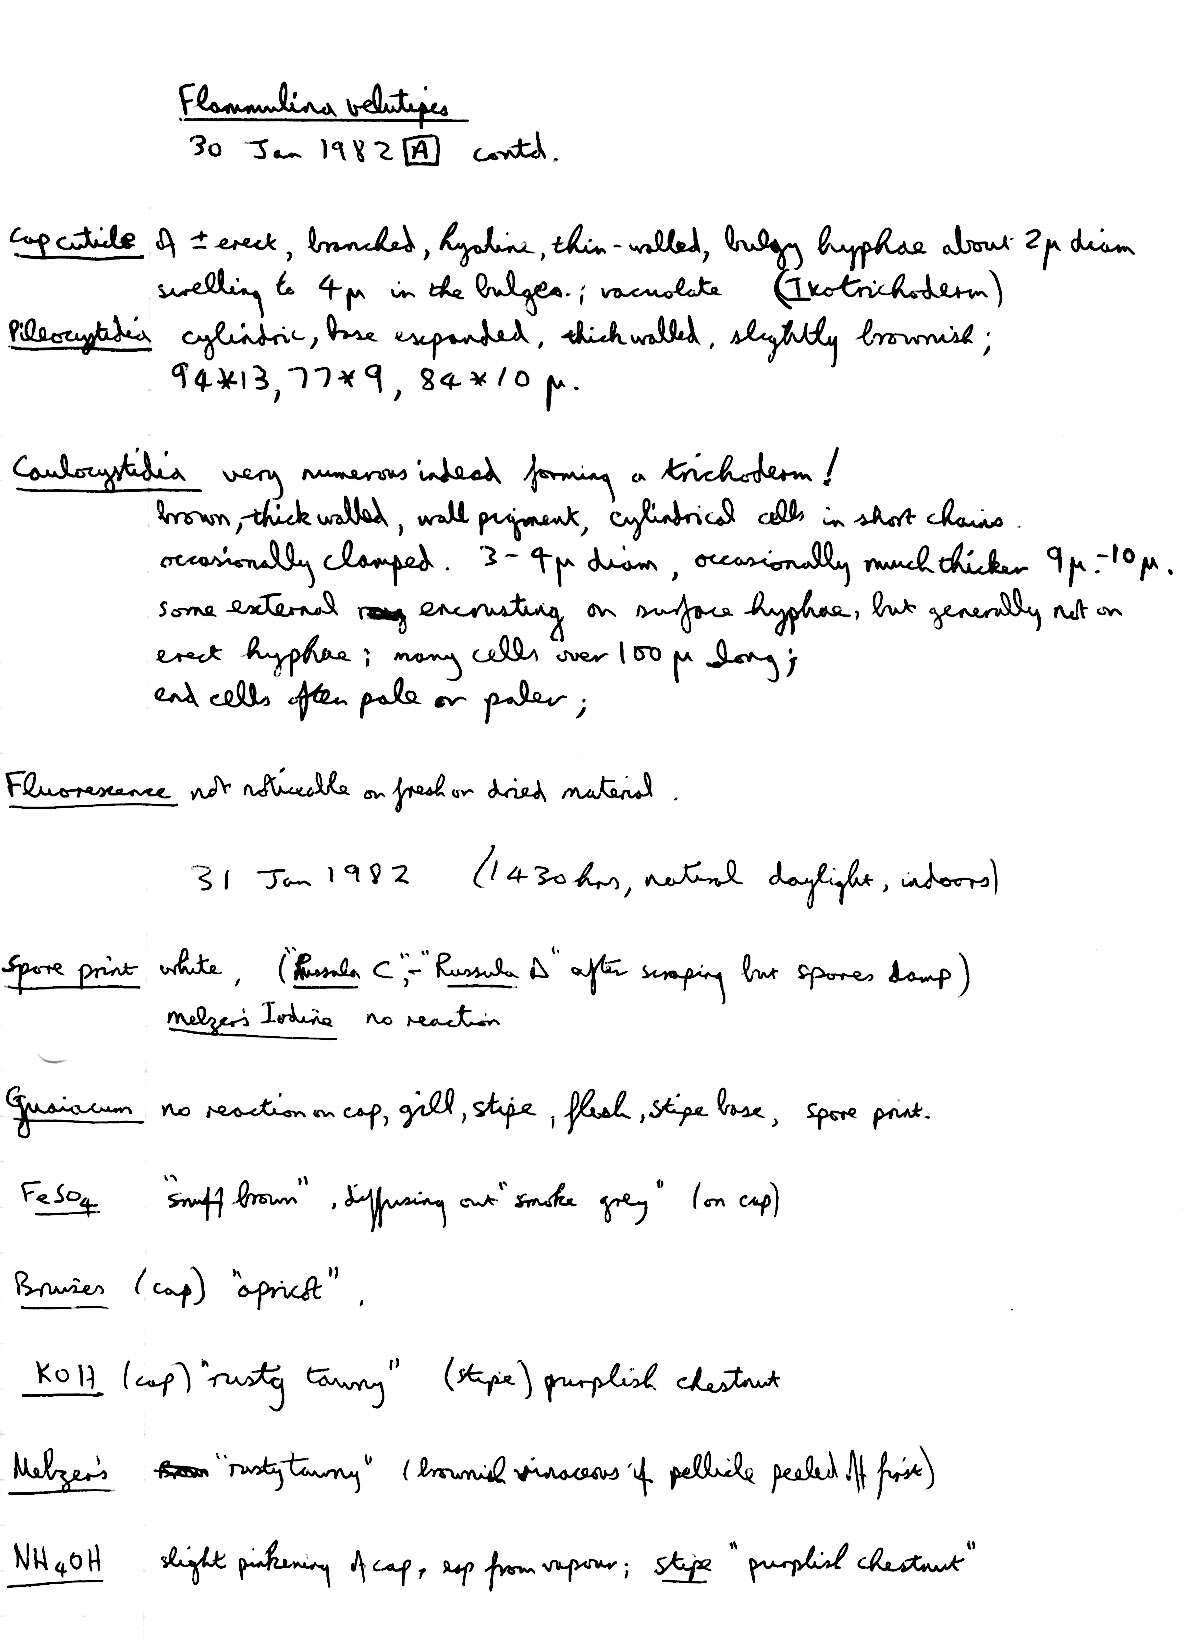 Flammulina velutipes
30 Jan 1982 A contd.
Cap cuticle of ± erect, branched, hyaline, thin-walled, bulgy hyphae about 2μ diam
swelling to 4μ in the bulges.; vacuolate (Ixotrichoderm)
Pileocystidia cylindric, base expanded, thick walled, slightly brownish;
94*13, 77*9, 84*10 μ.
Caulocystidia very numerous indeed forming a trichoderm!
brown, thick walled, wall pigment, cylindrical cells in short chains.
occasionally clamped. 3-4μ diam, occasionally much thicker 9μ-10μ.
some external encrusting on surface hyphae, but generally not on
erect hyphae; many cells over 100 μ long;
end cells often pale or paler;
Fluorescence not noticeable on fresh or dried material.
31 Jan 1982 (1430 hrs, natural daylight, indoors)
Spore print white, ("Russula C",-"Russula D" after scraping but spores damp)
Melzer's Iodine no reaction
Guaiacum no reaction on cap, gill, stipe, flesh, stipe base, spore print.
FeSO4 "snuff brown", diffusing out "smoke grey" (on cap)
Bruises (cap) "apricot".
KOH (cap) "rusty tawny" (stipe) purplish chestnut
Melzer's "rusty tawny" (brownish vinaceous if pellicle peeled off first)
NH4OH slight pinkening of cap, esp from vapour; stipe "purplish chestnut"